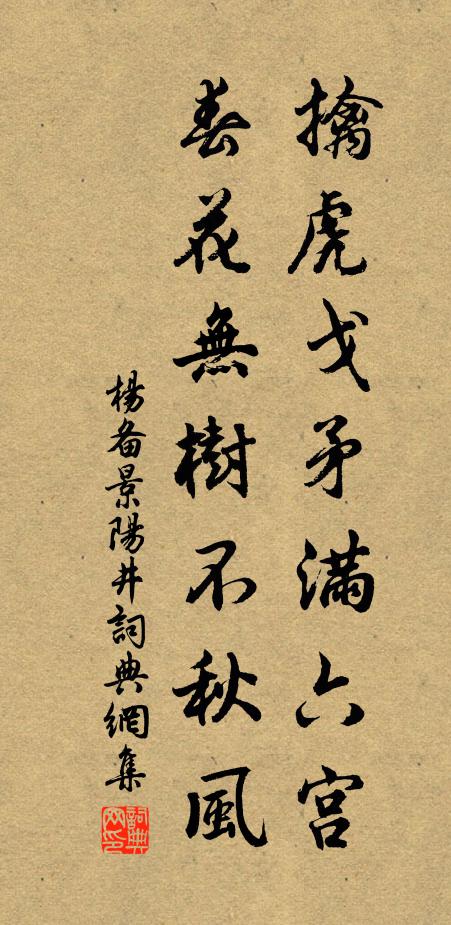 擒虎戈矛滿六宮
春花無樹不秋風
楊备景陽井詞典網集
詞典網印